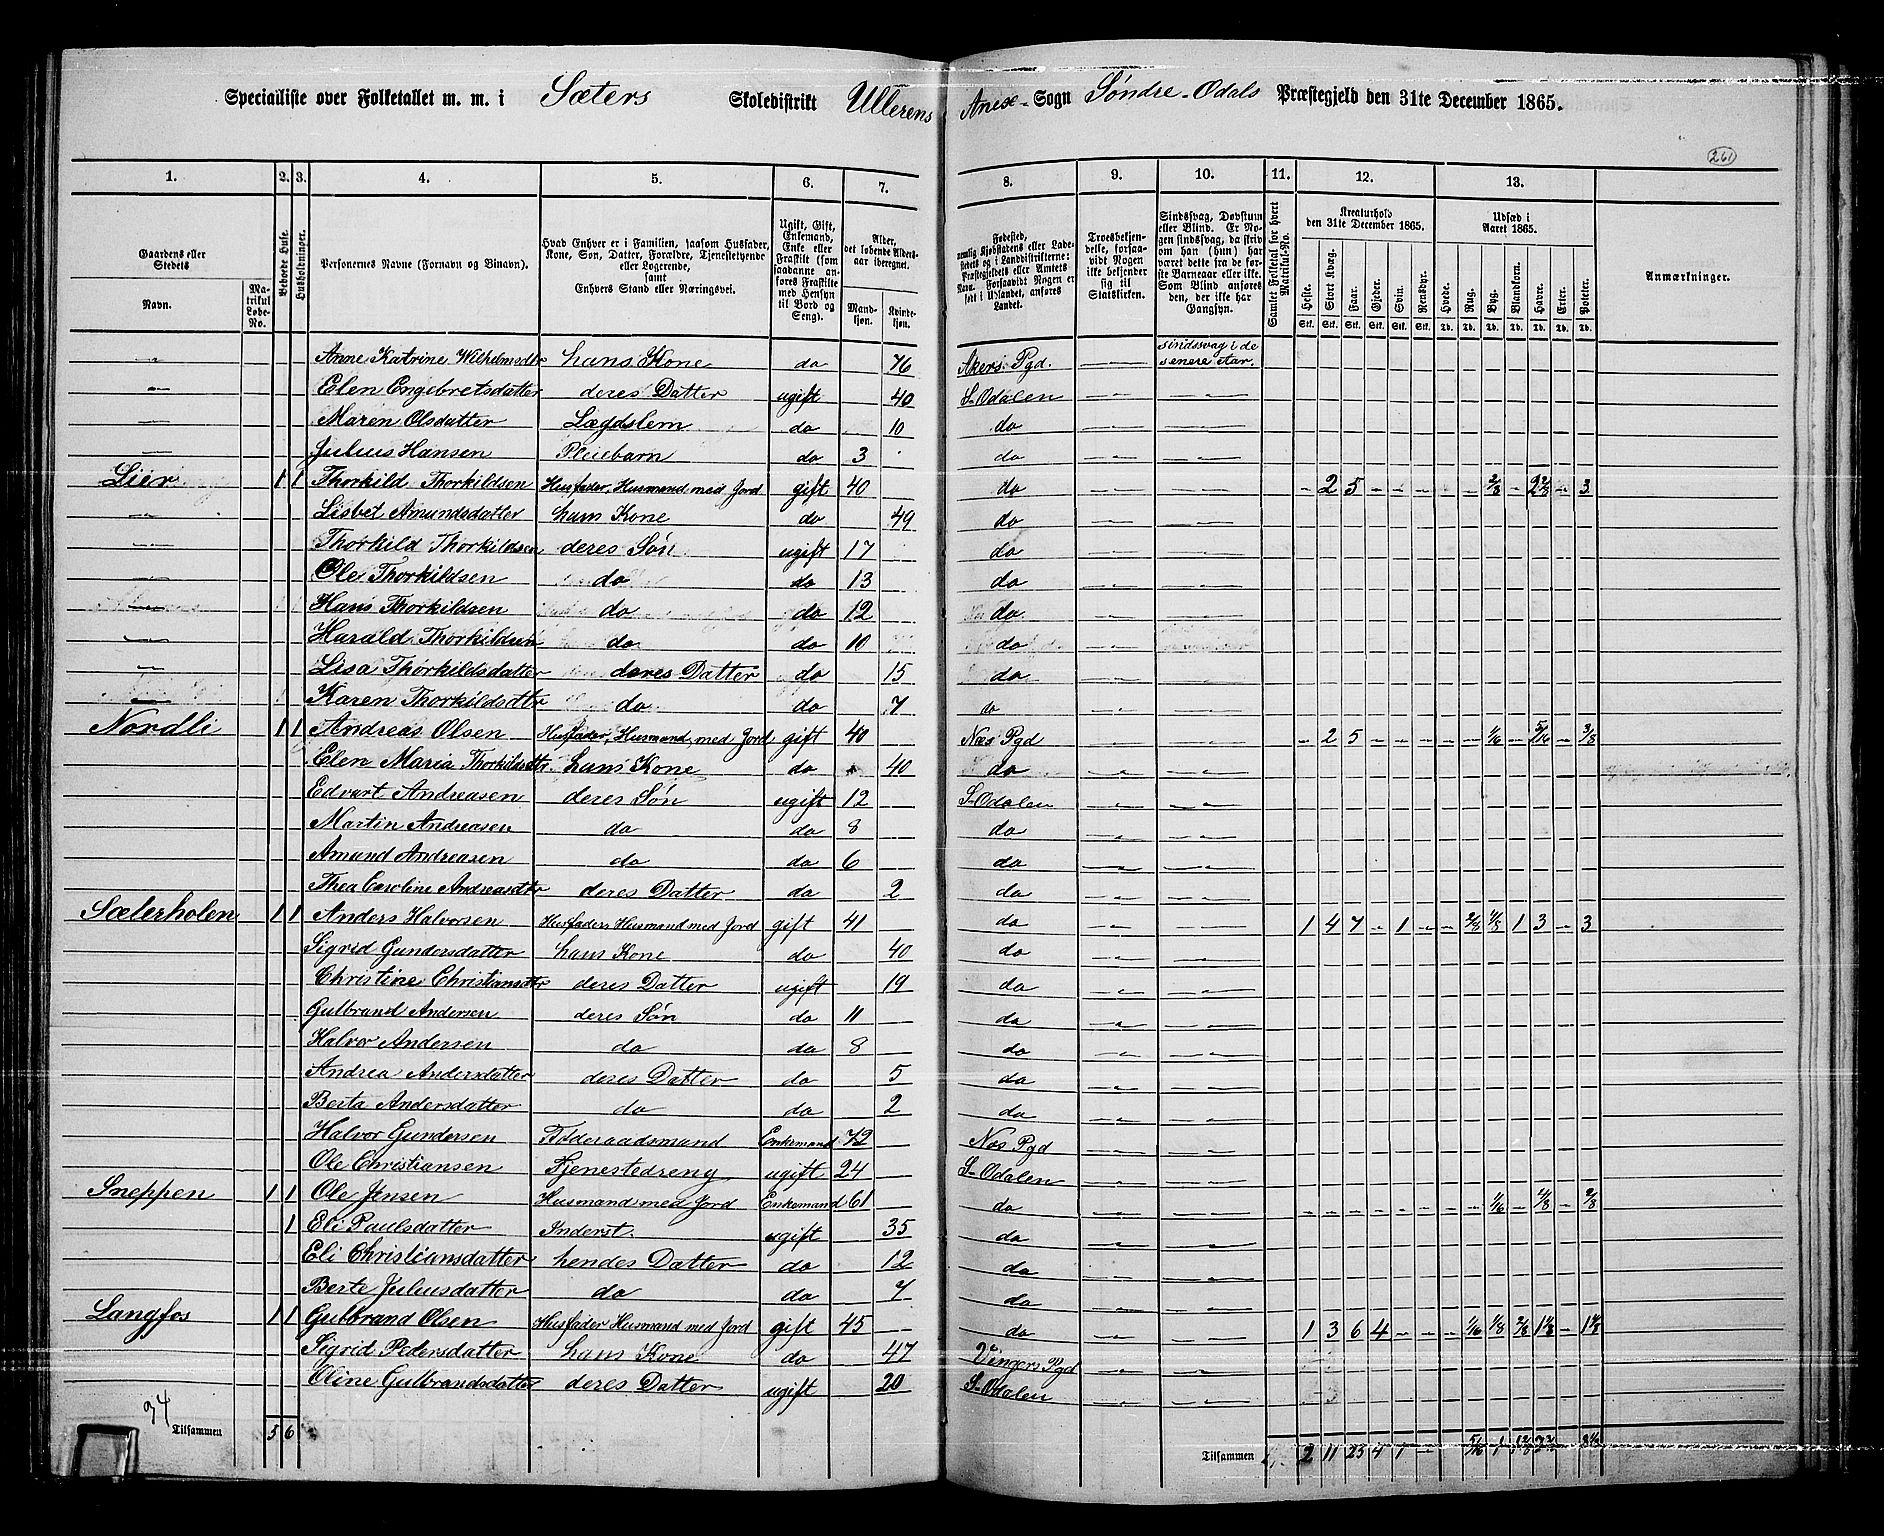 Specialliste over Folketallet m. m. i Sæters Skoledistrikt Ullerens Anexe-Sogn Søndre-Odals Præstegjeld den 31te December 1865.
261
1. 2. 3. 4. 5. 6. 7. 8. 9. 10. 11. 12. 13.
Gaardens eller Stedets
Navn.
Matrikul Løbe-No.
Beboede Huse.
Husholdninger.
Personernes Navne (Fornavn og Binavn).
Hvad Enhver er i Familien, saasom Husfader, Kone, Søn, Datter, Forældre, Tjenestetyende eller Logerende, samt Enhvers Stand eller Næringsvei.
Ugift, Gift, Enkemand, Enke eller Fraskilt (som saadanne anføres Fraskilte med Hensyn til Bord og Seng).
Alder, det løbende Aldersaar iberegnet.
Mandkjøn.
Kvindekjøn.
Fødested, nemlig Kjøbstadens eller Ladestedets og i Landdistrikterne: Præstegjeldets eller Amtets Navn. Forsaavidt Nogen er født i Udlandet, anføres Landet.
Troesbekjendelse, forsaavidt Nogen ikke bekjender sig til Statskirken.
Sindssvag, Døvstum eller Blind. Er Nogen sindssvag, da skriv om han (hun) har været dette fra de første Barneaar eller ikke. Som Blind anføres den, der ikke har Gangsyn.
Samlet Folketal for hvert Matrikul-No.
Kreaturhold den 31te December 1865.
Heste. Stort Kvæg. Faar. Gjeder. Svin. Rensdyr.
Udsæd i Aaret 1865.
Hvede. Rug. Byg. Blandkorn. Havre. Erter. Poteter.
Anmærkninger.
Stk. Stk. Stk. Stk. Stk. Stk. Td. Td. Td. Td. Td. Td. Td.
Anne Katrine Wilhelmsdtr hans Kone do 76 Akers Pgd. sindssvag i de senere Aar.
Elen Engebretsdatter deres Datter ugift 40 S-Odalen
Maren Olsdatter Lægdslem do 10 do
Julius Hansen Pleiebarn do 3 do
Lier 1 1 Thorkild Thorkildsen Husfader, Husmand med Jord gift 40 do - 2 5 - - - - - 2/8 - 2 2/8 - 3
Lisbet Amundsdatter hans Kone do 49 do
Thorkild Thorkildsen deres Søn ugift 17 do
Ole Thorkildsen do do 13 do
Hans Thorkildsen do do 12 do
Harald Thorkildsen do do 10 do
Lisa Thorkildsdatter deres Datter do 15 do
Karen Thorkildsdtr do do 7 do
Nordli 1 1 Andreas Olsen Husfader, Husmand med Jord gift 40 Næs Pgd - 2 5 - - - - - 1/16 - 5/16 - 3/8
Elen Maria Thorkildsdtr. hans Kone do 40 do
Edvart Andreasen deres Søn ugift 12 S-Odalen
Martin Andreasen do do 8 do
Amund Andreasen do do 6 do
Thea Caroline Andreasdtr deres Datter do 2 do
Sæterholen 1 1 Anders Halvorsen Husfader Husmand med Jord gift 41 do 1 4 7 - 1 - - 2/8 1/8 1 3 - 3
Sigrid Gundersdatter hans Kone do 40 do
Christine Christiansdtr deres Datter ugift 19 do
Gulbrand Andersen deres Søn do 11 do
Halvor Andersen do do 8 do
Andrea Andersdatter deres Datter do 5 do
Berta Andersdatter do do 2 do
Halvor Gundersen Føderaadsmand Enkemand 72 Næs Pgd
Ole Christiansen Tjenestedreng ugift 24 S-Odalen
Sneppen 1 1 Ole Jensen Husmand med Jord Enkemand 61 do - - - - - - - - 1/16 - 4/8 - 2/8
1 Eli Paulsdatter Inderst. ugift 35 do
Eli Christiansdatter hendes Datter do 12 do
Berte Juliusdatter do do 7 do
Langfos 1 1 Gulbrand Olsen Husfader Husmand med Jord gift 45 do 1 3 6 4 - - - 1/16 1/8 2/8 1 4/8 - 1 4/8
Sigrid Pedersdatter hans Kone do 47 Vingers Pgd
Oline Gulbrandsdatter deres Datter ugift 20 S-Odalen
34
Tilsammen 5 6
Tilsammen 2 11 23 4 1 - - 5/16